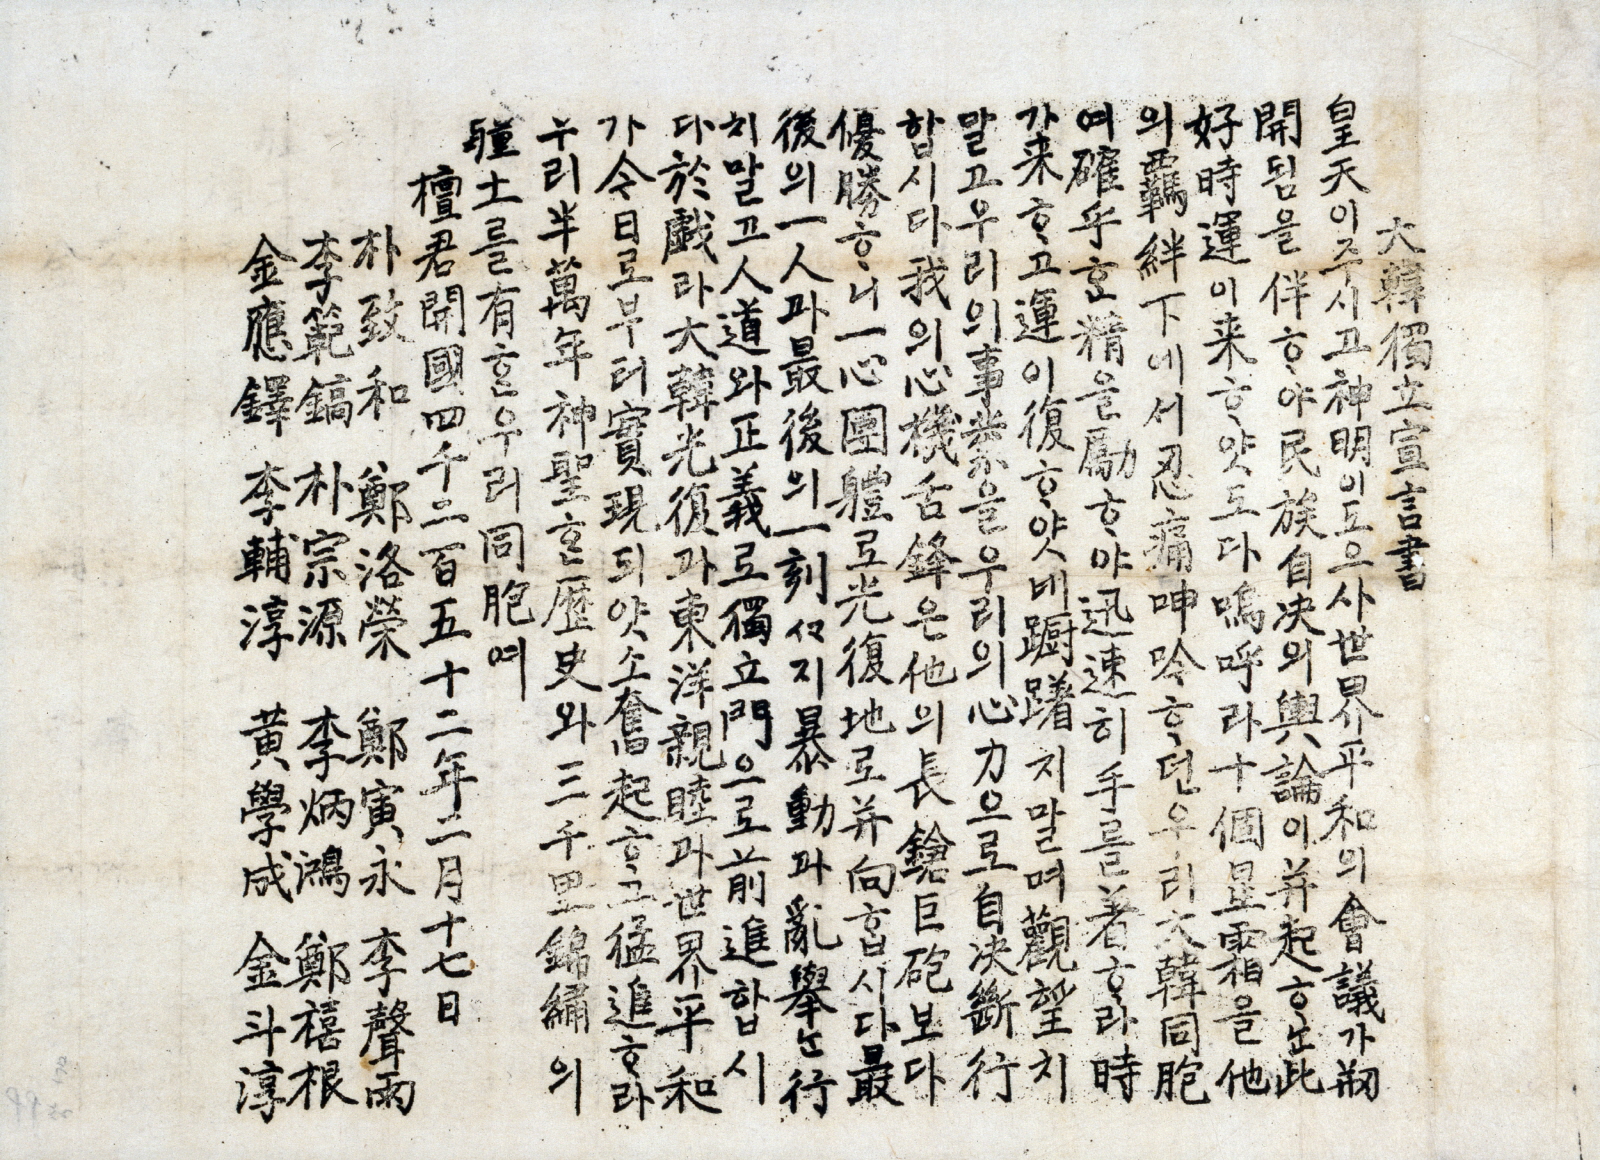 大韓獨立宣言書
皇天이주시고神明이도으사世界平和의會議가刱
開됨을伴ᄒᆞ야民族自决의輿論이并起ᄒᆞᄂᆞᆫ此
好時運이来ᄒᆞ얏도다嗚呼라十個星霜을他
의羈絆下에서忍痛呻吟ᄒᆞ던우리大韓同胞
여確乎ᄒᆞᆫ精을勵ᄒᆞ야迅速히手를著ᄒᆞ라時
가来ᄒᆞ고運이復ᄒᆞ얏네躕躇지말며觀望치
말고우리의事業을우리의心力으로自决斷行
합시다我의心機舌鋒은他의長鎗巨砲보다
優勝ᄒᆞ니一心團軆로光復地로并向ᄒᆞᆸ시다最
後의一人과最後의一刻ᄭᆞ지暴動과亂擧ᄂᆞᆫ行
치말고人道와正義로獨立門으로前進합시
다於戲라大韓光復과東洋親睦과世界平和
가今日로부터實現되얏소奮起ᄒᆞ고猛進ᄒᆞ라
우리半萬年神聖ᄒᆞᆫ歷史와三千里錦繡의
疆土를有ᄒᆞᆫ우리同胞여
檀君開國四千二百五十二年二月十七日
朴致和 鄭洛榮 鄭寅永 李聲雨
李範鎬 朴宗源 李炳鴻 鄭禧根
金應鐸 李輔淳 黃學成 金斗淳